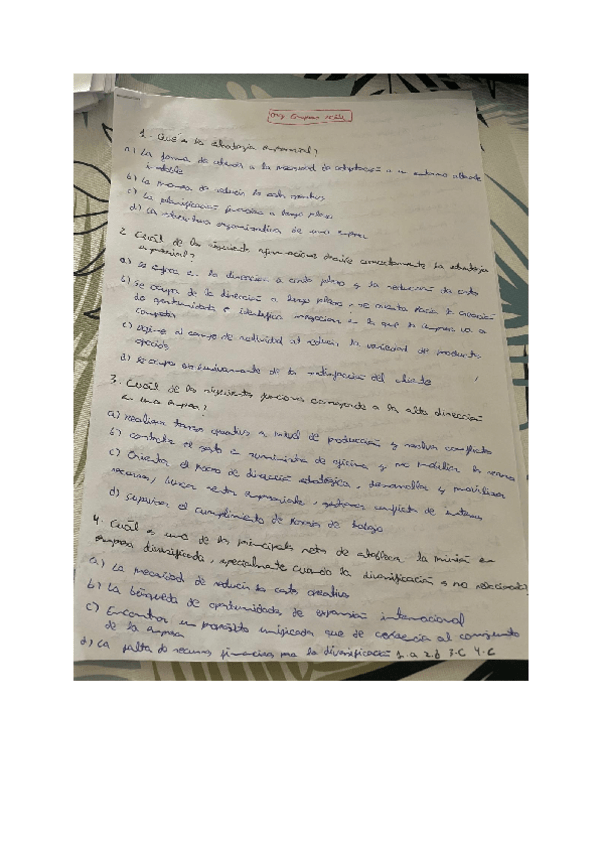 1. Qué es la estrategia empresarial?
a) La forma de atender a la necesidad de adaptación a un entorno altamente
inestable
b) La manera de reducir los costes
c) La planificación financiera a largo plazo
d) La estructura organizativa de una empresa
2. Cuál de las siguientes afirmaciones describe correctamente la estrategia
empresarial?
a) Se enfoca en la dirección a corto plazo y la reducción de costes
b) Se ocupa de la dirección a largo plazo, se orienta hacia la creación
de oportunidades e identifica negocios en los que la empresa va a
competir
c) Define el campo de actividad al reducir la variedad de productos
d) Se ocupa exclusivamente de la satisfacción del cliente
3. Cuál de las siguientes funciones corresponde a la alta dirección
en una empresa?
a) realizar tareas operativas a nivel de producción y resolver conflictos
b) controlar el gasto en suministros de oficina y no movilizar los recursos
c) Orientar el proceso de dirección estratégica, desarrollar y movilizar
recursos, buscar empresariales, gestionar conflictos de intereses
d) supervisar el cumplimiento de horarios de trabajo
4. Cuál es uno de los principales retos de establecer la misión en
empresas diversificadas, especialmente cuando la diversificación es no relacionada
a) La necesidad de reducir los costes operativos
b) La búsqueda de oportunidades de expansión internacional
c) Encontrar un propósito unificado que de coherencia al conjunto
de la empresa
d) La falta de recursos financieros para la diversificación 1.a 2.b 3.C 4.C